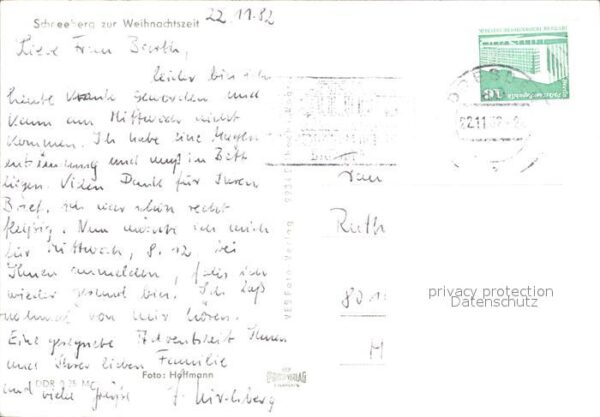 Schneeberg zur Weihnachtszeit
22.11.82
Liebe Frau Barth,
leider bin ich
heute krank geworden und
kann am Mittwoch nicht
kommen. Ich habe eine Magen
entzündung und muß im Bett
liegen. Vielen Dank für Ihren
Brief, ich war schon recht
fleißig. Nun möchte ich mich
für Mittwoch, 8.12. bei
Ihnen anmelden, falls ich
wieder gesund bin. Ich laß
nochmal von mir hören.
Eine gesegnete Adventszeit Ihnen
und Ihrer lieben Familie
und viele Grüße
Foto: Hoffmann
DDR 0,25 M
VEB Foto-Verlag
22.11.82
Frau
Ruth
80
privacy protection
Datenschutz